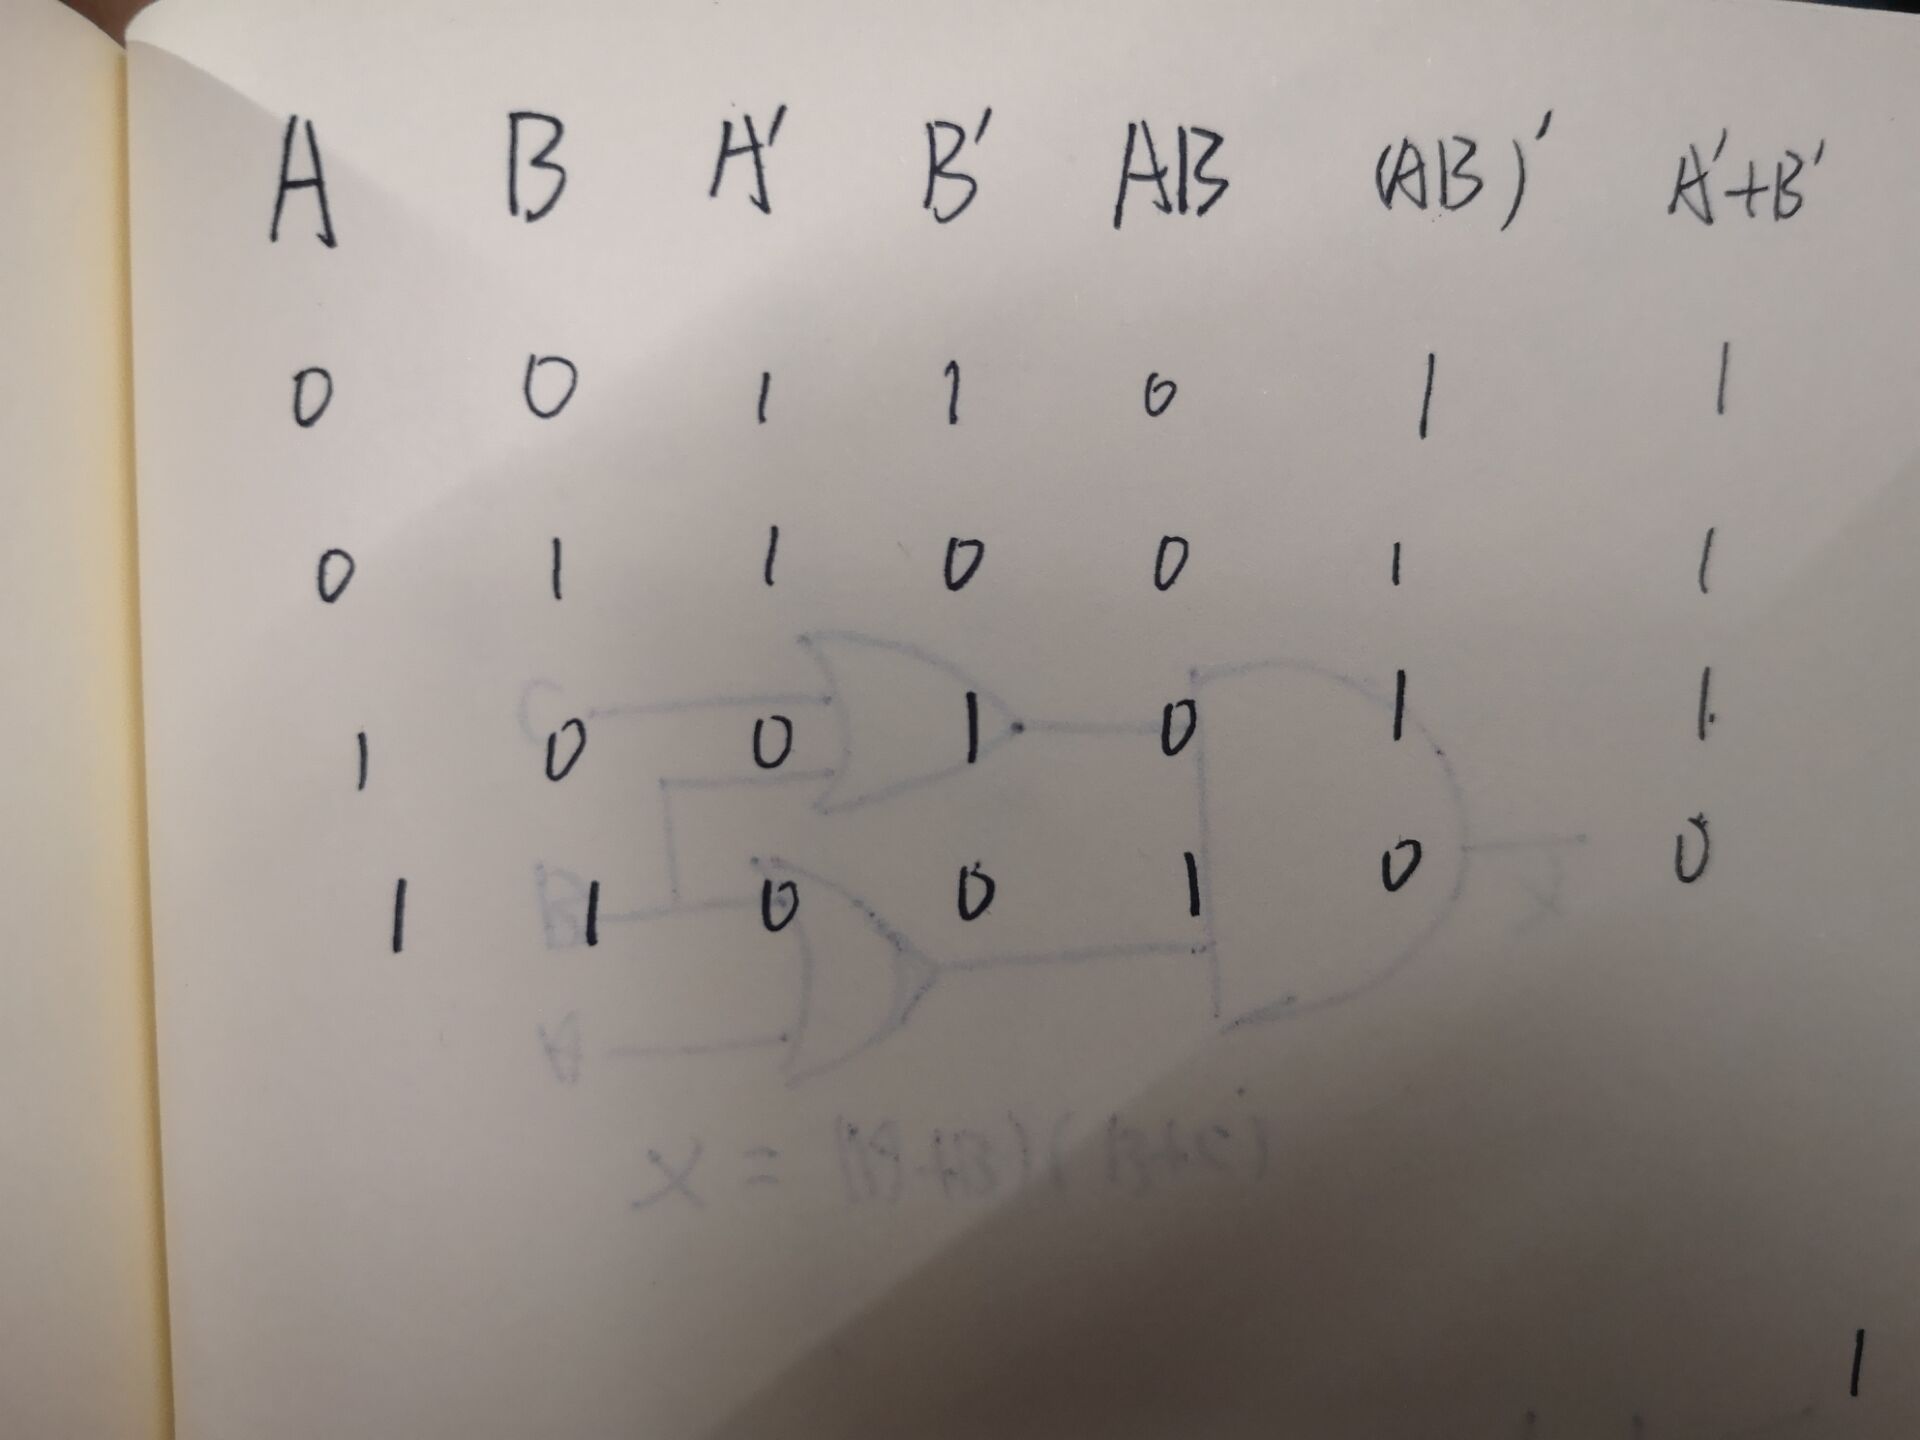 A B A' B' AB (AB)' A'+B'
0 0 1 1 0 1 1
0 1 1 0 0 1 1
1 0 0 1 0 1 1
1 1 0 0 1 0 0
C
B
A
X
X = (A+B)(B+C)
1